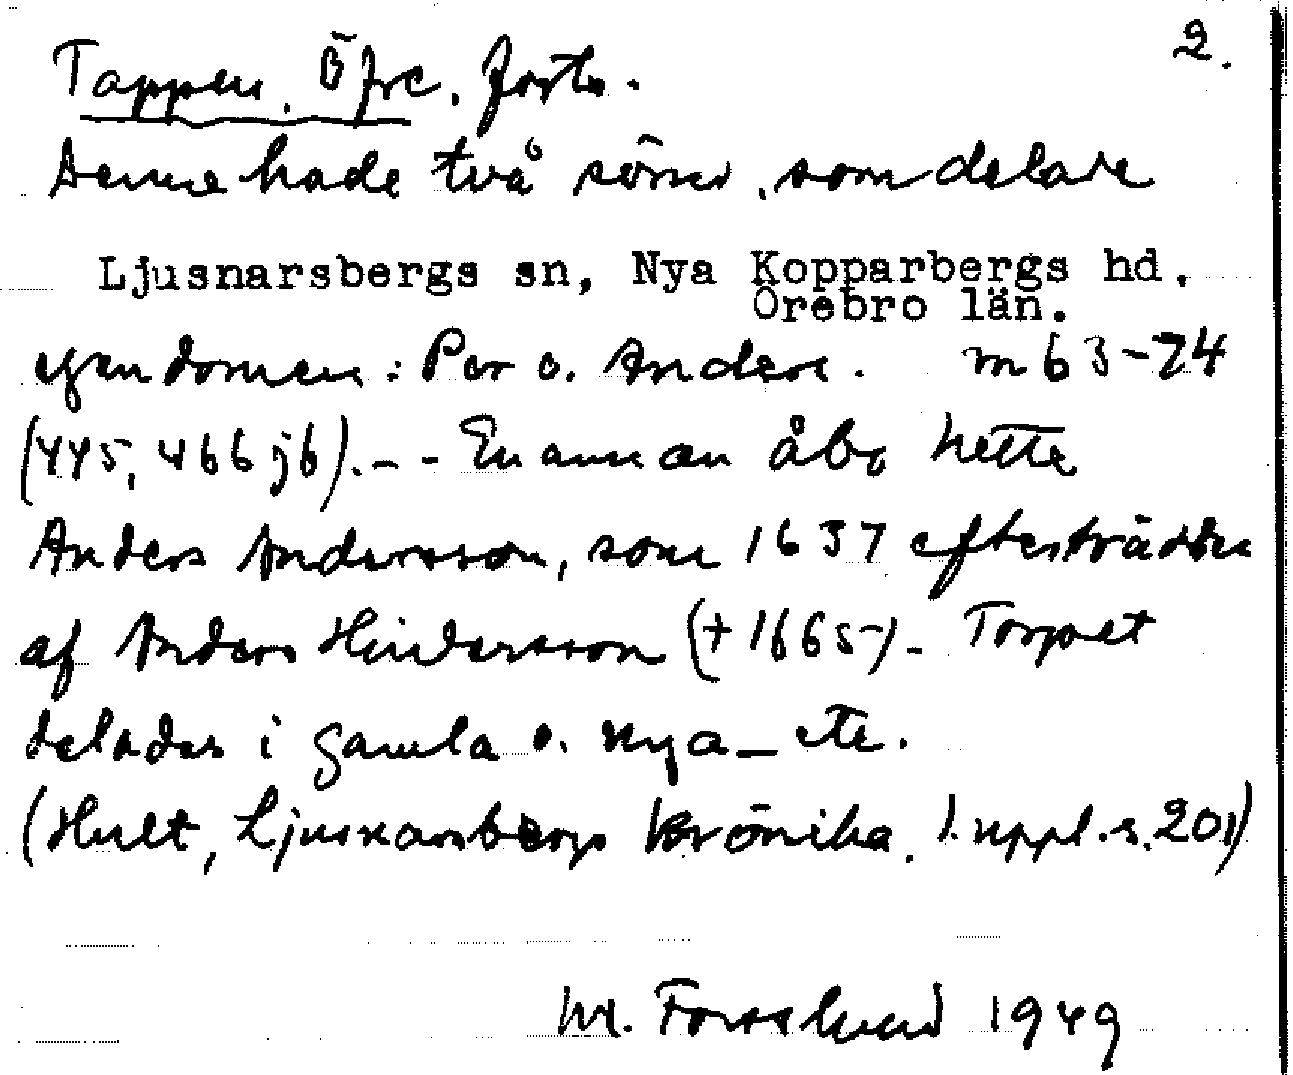 2.
Tappen, Öfre. forts.
Denne hade två söner, som delade
Ljusnarsbergs sn, Nya Kopparbergs hd.
Örebro län.
egendomen: Per o. Anders. m 63-74
(445, 466 jb). - - En annan åbo hette
Anders Andersson, som 1637 efterträddes
af Anders Hindersson (+ 1665) - Torpet
delades i gamla o. nya - etc.
(Hult, Ljusnarsbergs krönika. 1. uppl. s. 201)
M. Forsslund 1949